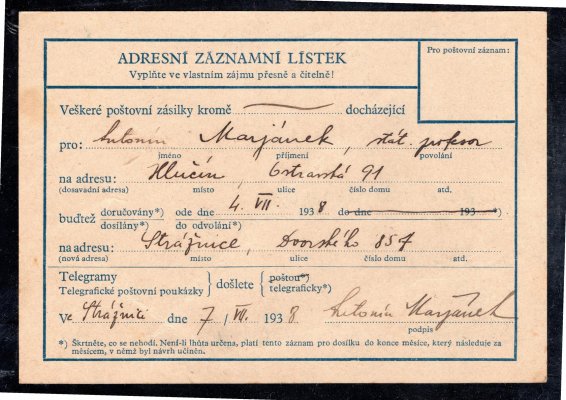 ADRESNÍ ZÁZNAMNÍ LÍSTEK
Vyplňte ve vlastním zájmu přesně a čitelně!
Pro poštovní záznam:
Veškeré poštovní zásilky kromě docházející
pro: Antonín Marjánek, stát. profesor
jméno příjmení povolání
na adresu: Hlučín, Ostravská 91
(dosavadní adresa) místo ulice číslo domu atd.
buďtež doručovány*) ode dne 4. VII. 1938 do dne 193 *)
dosílány*) do odvolání*)
na adresu: Strážnice, Dvorského 857
(nová adresa) místo ulice číslo domu atd.
Telegramy
Telegrafické poštovní poukázky } došlete { poštou*)
telegraficky*)
Ve Strážnici dne 7 / VII. 1938 Antonín Marjánek
podpis
*) Škrtněte, co se nehodí. Není-li lhůta určena, platí tento záznam pro dosílku do konce měsíce, který následuje za
měsícem, v němž byl návrh učiněn.